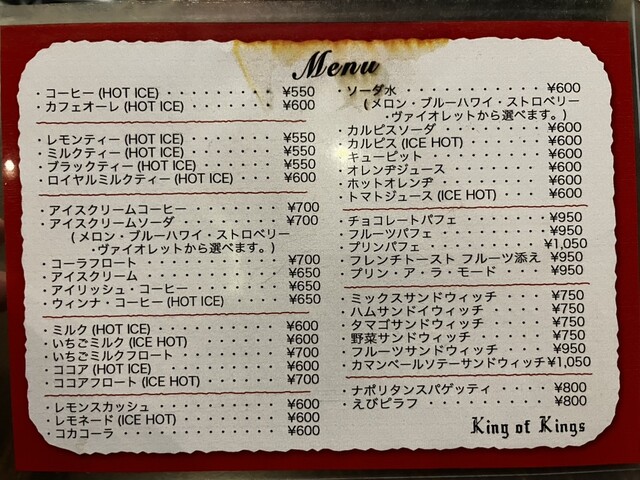 Menu
・コーヒー (HOT ICE) ・・・・・・・・・ ¥550
・カフェオーレ (HOT ICE) ・・・・・・・ ¥600
・レモンティー (HOT ICE) ・・・・・・・ ¥550
・ミルクティー (HOT ICE) ・・・・・・・ ¥550
・ブラックティー (HOT ICE) ・・・・・・ ¥550
・ロイヤルミルクティー (HOT ICE) ・・・ ¥600
・アイスクリームコーヒー ・・・・・・・ ¥700
・アイスクリームソーダ ・・・・・・・・ ¥700
(メロン・ブルーハワイ・ストロベリー
・ヴァイオレットから選べます。)
・コーラフロート ・・・・・・・・・・・ ¥700
・アイスクリーム ・・・・・・・・・・・ ¥650
・アイリッシュ・コーヒー ・・・・・・・ ¥650
・ウィンナ・コーヒー (HOT ICE) ・・・・ ¥650
・ミルク (HOT ICE) ・・・・・・・・・・ ¥600
・いちごミルク (ICE HOT) ・・・・・・・ ¥600
・いちごミルクフロート ・・・・・・・・ ¥700
・ココア (HOT ICE) ・・・・・・・・・・ ¥600
・ココアフロート (ICE HOT) ・・・・・・ ¥700
・レモンスカッシュ ・・・・・・・・・・ ¥600
・レモネード (ICE HOT) ・・・・・・・・ ¥600
・コカコーラ ・・・・・・・・・・・・・ ¥600
・ソーダ水 ・・・・・・・・・・・・・ ¥600
(メロン・ブルーハワイ・ストロベリー
・ヴァイオレットから選べます。)
・カルピスソーダ ・・・・・・・・・・ ¥600
・カルピス (ICE HOT) ・・・・・・・・ ¥600
・キューピット ・・・・・・・・・・・ ¥600
・オレンヂジュース ・・・・・・・・・ ¥600
・ホットオレンヂ ・・・・・・・・・・ ¥600
・トマトジュース (ICE HOT) ・・・・・ ¥600
・チョコレートパフェ ・・・・・・・・ ¥950
・フルーツパフェ ・・・・・・・・・・ ¥950
・プリンパフェ ・・・・・・・・・・・ ¥1,050
・フレンチトースト フルーツ添え ¥950
・プリン・ア・ラ・モード ・・・・・・ ¥950
・ミックスサンドウィッチ ・・・・・・ ¥750
・ハムサンドイウィッチ ・・・・・・・ ¥750
・タマゴサンドウィッチ ・・・・・・・ ¥750
・野菜サンドウィッチ ・・・・・・・・ ¥750
・フルーツサンドウィッチ ・・・・・・ ¥950
・カマンベールソテーサンドウィッチ ¥1,050
・ナポリタンスパゲッティ ・・・・・・ ¥800
・えびピラフ ・・・・・・・・・・・・ ¥800
King of Kings